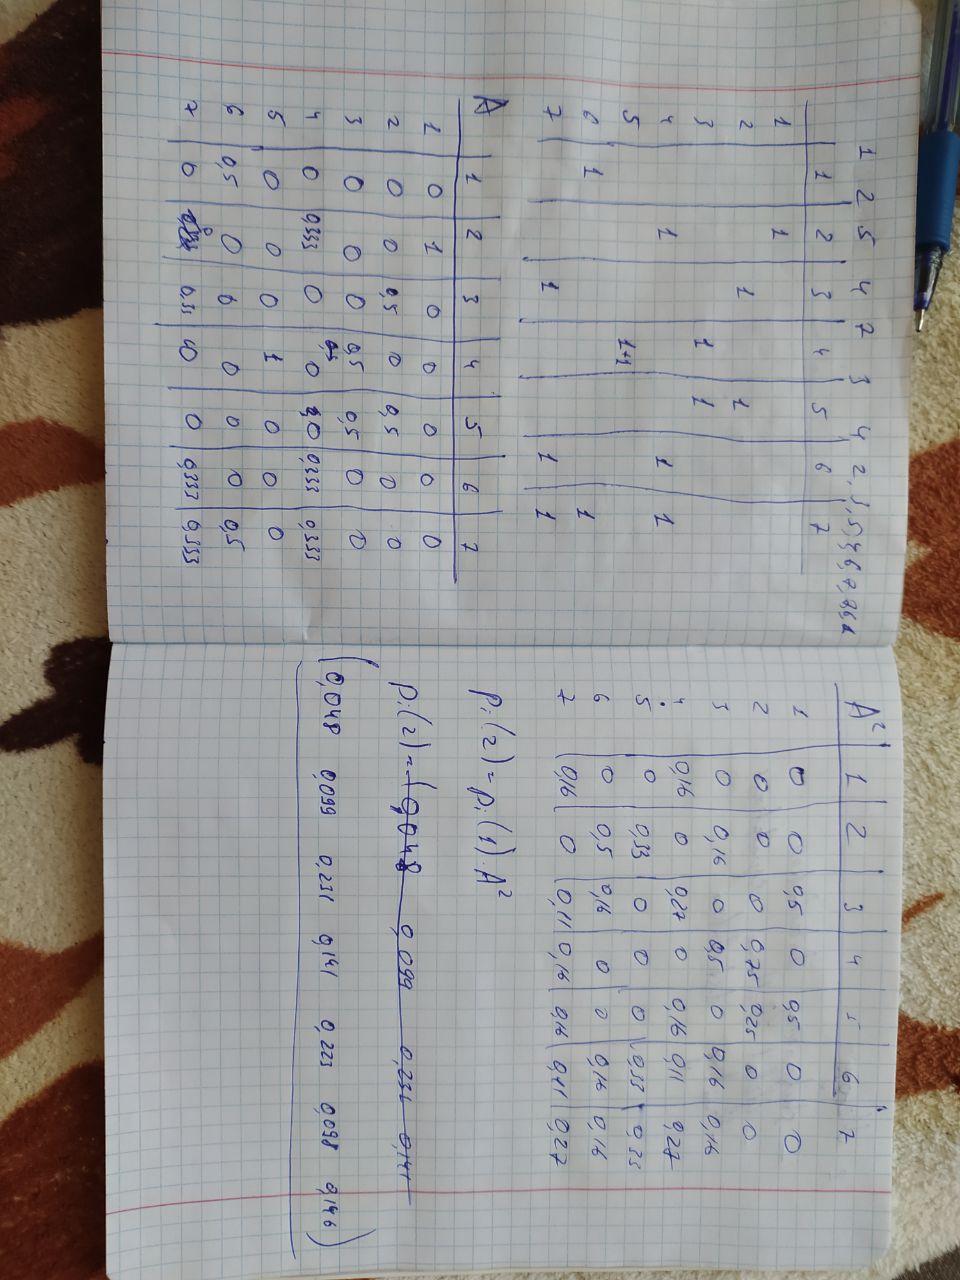 1 2 5 4 7 3 4 2, 1, 5
1 2 3 4 5 6 7
1 1
2 1 1
3 1 1
4 1 1 1
5 1+1
6 1 1
7 1 1 1
A 1 2 3 4 5 6 7
1 0 1 0 0 0 0 0
2 0 0 0,5 0 0,5 0 0
3 0 0 0 0,5 0,5 0 0
4 0 0,333 0 0 0 0,333 0,333
5 0 0 0 1 0 0 0
6 0,5 0 0 0 0 0 0,5
7 0 0 0,33 0 0 0,333 0,333
A² 1 2 3 4 5 6 7
1 0 0 0,5 0 0,5 0 0
2 0 0 0 0,75 0,25 0 0
3 0 0,16 0 0,5 0 0,16 0,16
4 0,16 0 0,27 0 0,16 0,11 0,27
5 0 0,33 0 0 0 0,33
6 0 0,5 0,16 0 0 0,16 0,16
7 0,16 0 0,11 0,16 0,16 0,11 0,27
Pi(2) = Pi(1)·A²
Pi(2) = (0,048 0,099 0,231 0,141
(0,048 0,099 0,231 0,141 0,223 0,098 0,146)